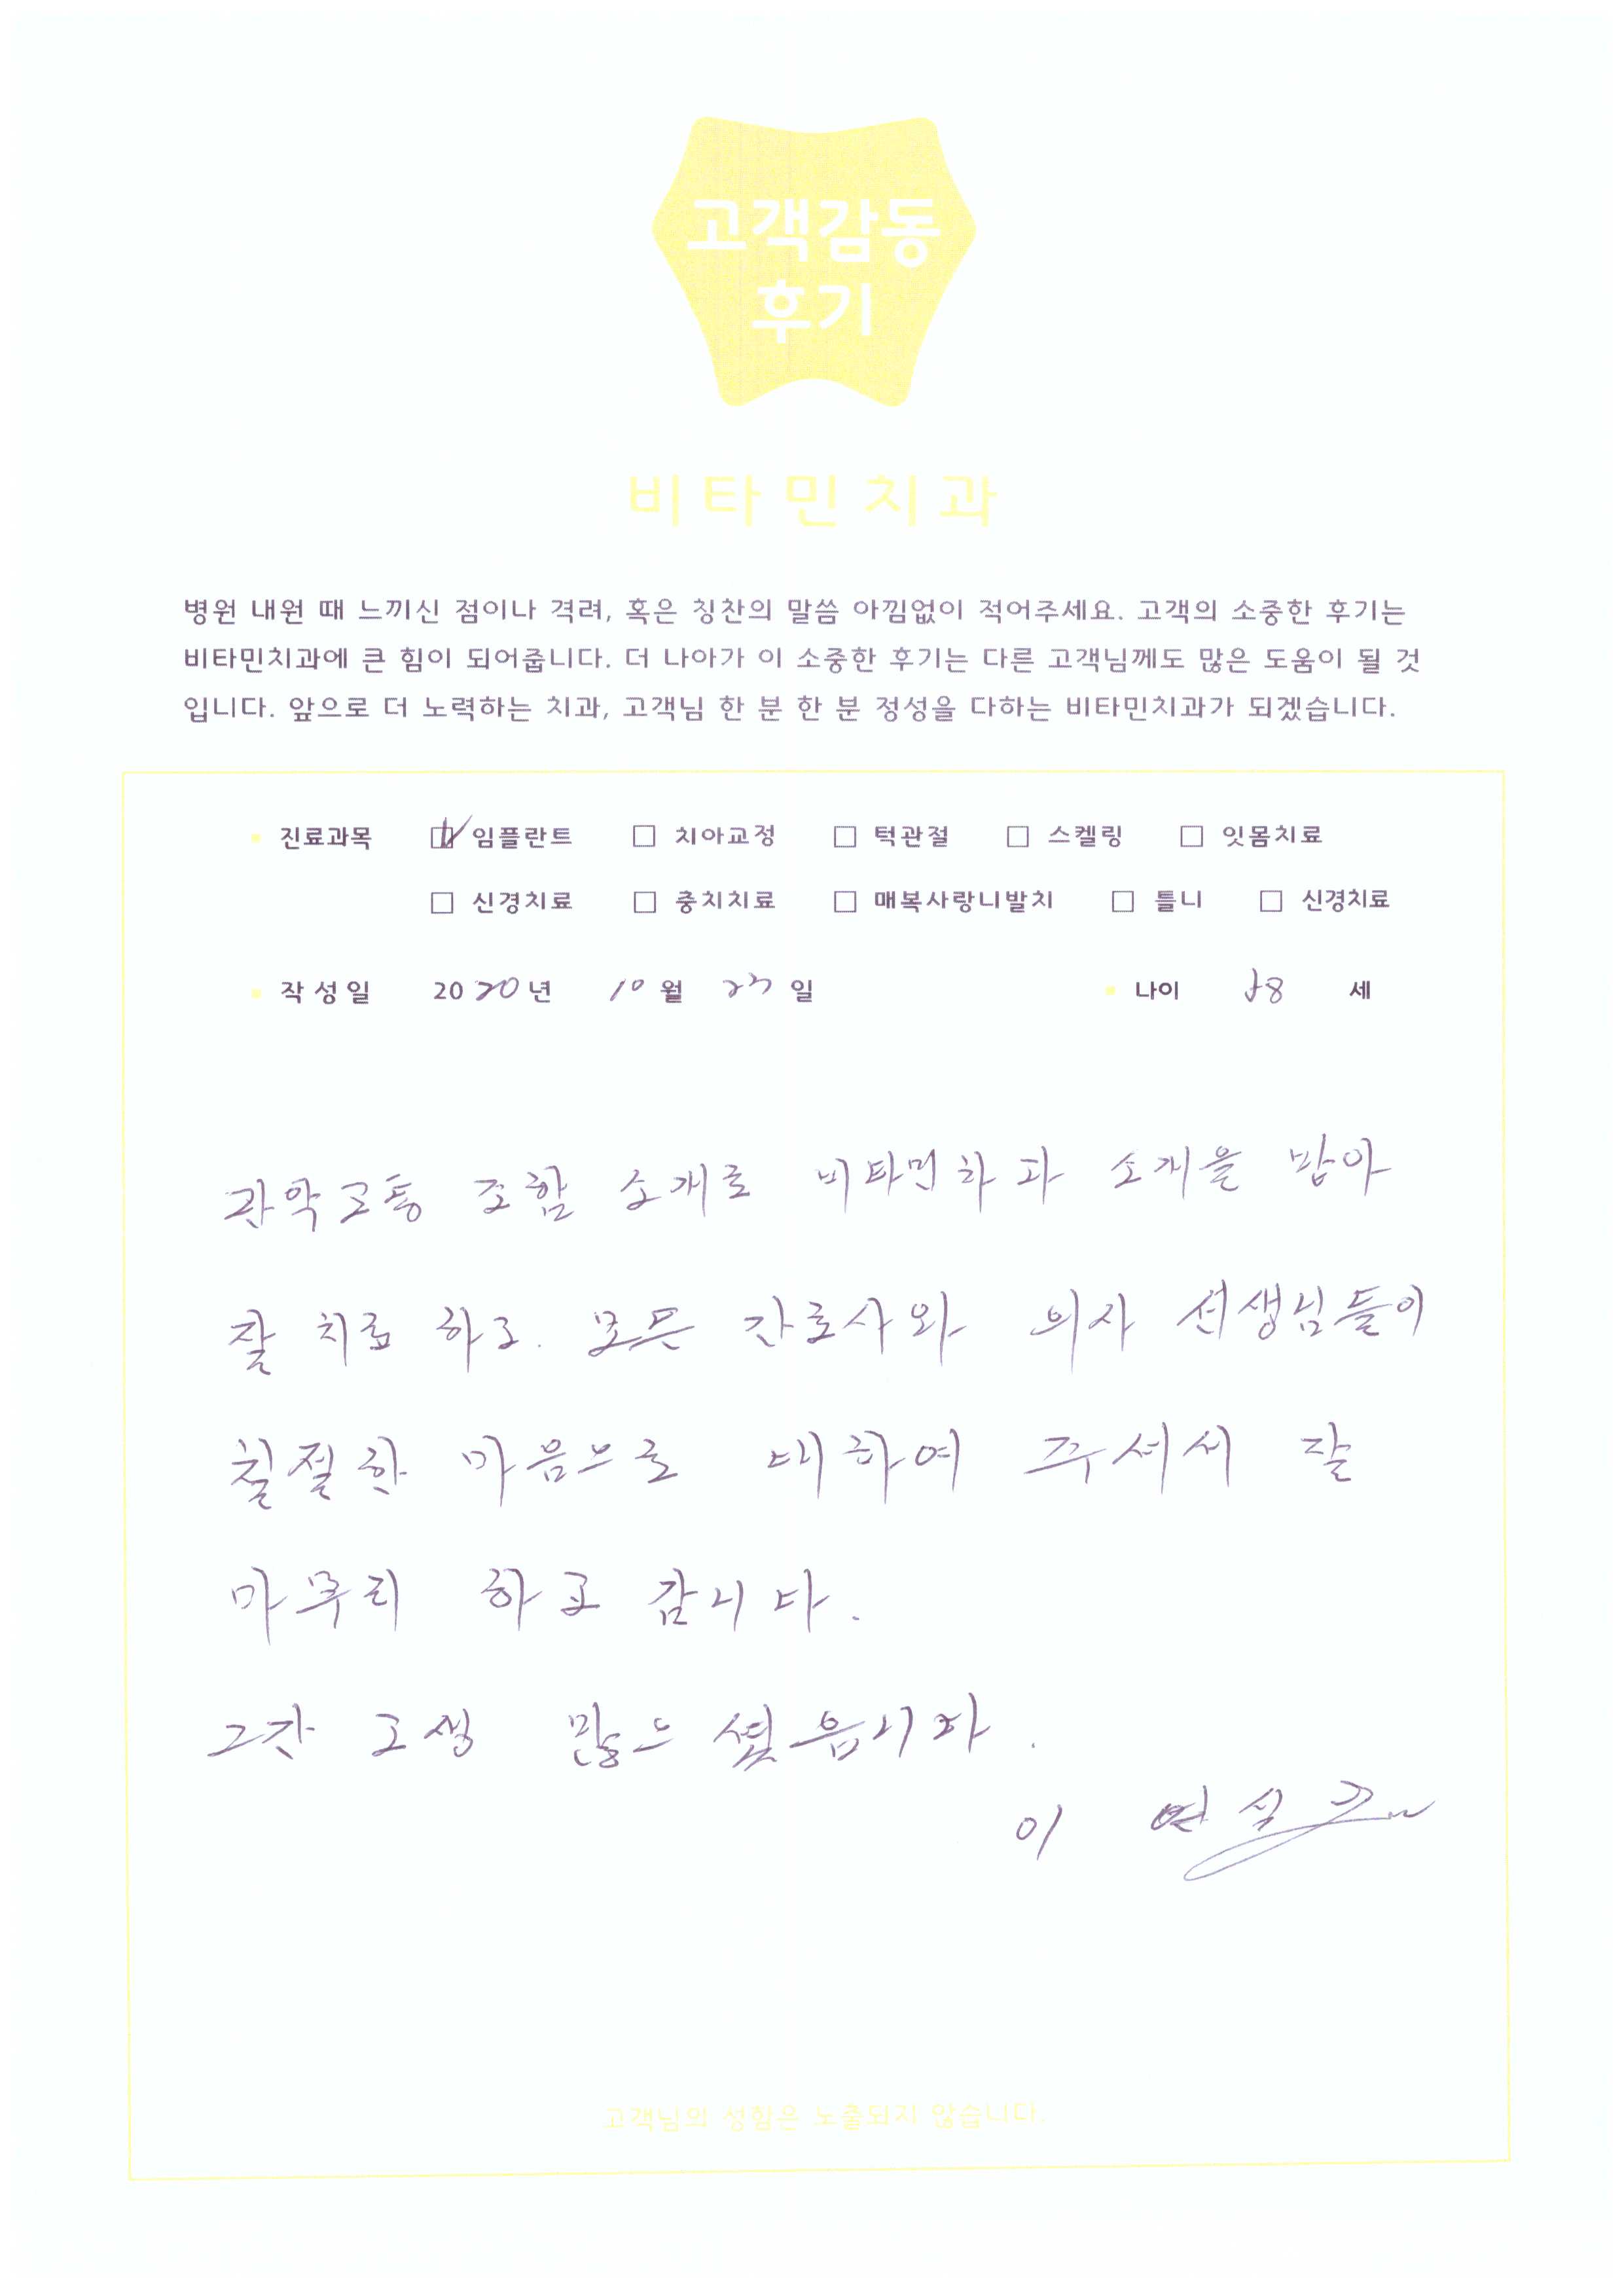 고객감동
후기
비타민치과
병원 내원 때 느끼신 점이나 격려, 혹은 칭찬의 말씀 아낌없이 적어주세요. 고객의 소중한 후기는
비타민치과에 큰 힘이 되어줍니다. 더 나아가 이 소중한 후기는 다른 고객님께도 많은 도움이 될 것
입니다. 앞으로 더 노력하는 치과, 고객님 한 분 한 분 정성을 다하는 비타민치과가 되겠습니다.
진료과목 임플란트 치아교정 턱관절 스켈링 잇몸치료
신경치료 충치치료 매복사랑니발치 틀니 신경치료
작성일 2020년 10월 일 나이 세
관악고통 조합 소개로 비타민하과 소개을 밥아
잘 치료 하고. 모든 간로사와 의사 선생님들이
칠절한 마음으로 대하여 주셔서 잘
마무리 하고 갑니다.
그간 고생 많으셨읍니다.
이
고객님의 성함은 노출되지 않습니다.